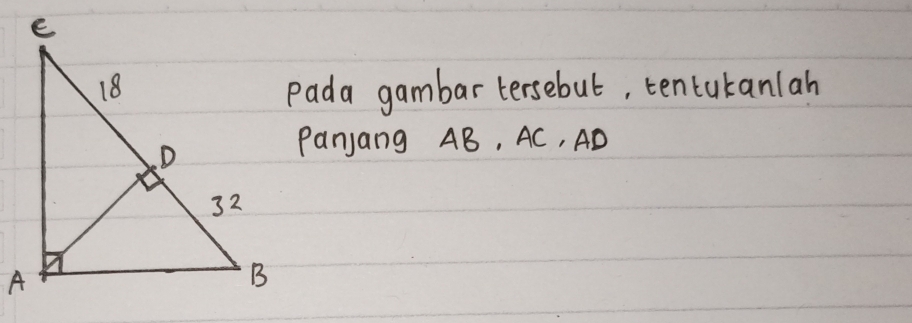 C
18
D
32
A
B
Pada gambar tersebut, tentukanlah
Panjang AB, AC, AD